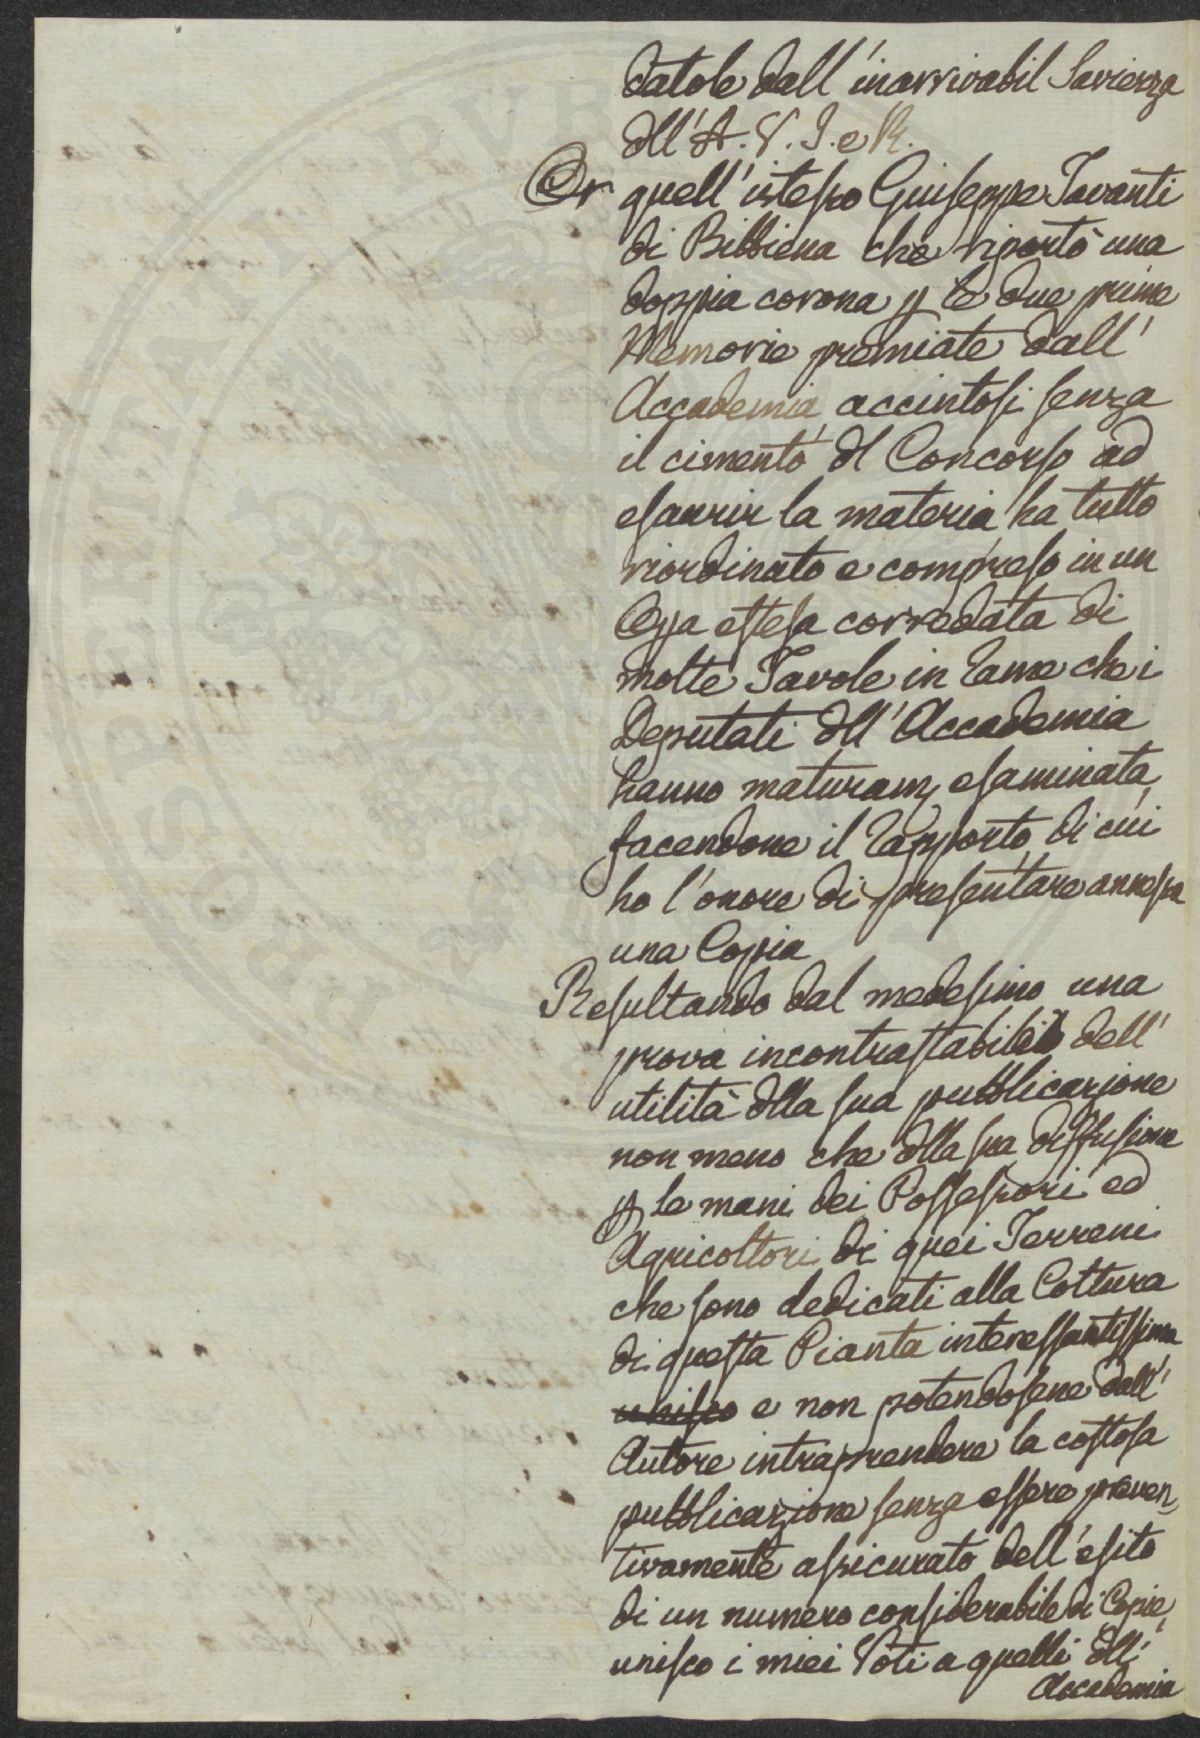 datole dall'inarrivabil Savienza
dll'A. V. I. e R.
Or quell'istesso Guiseppe Tavanti
di Bibbiena che riportò una
doppia corona p le due prime
Memorie premiate dall'
Accademia, accintosi senza
il cimento dl Concorso ad
esaurir la materia ha tutto
riordinato e compreso in un
Opa estesa corredata di
molte Tavole in Rame che i
Deputati dll'Accademia
hanno maturam esaminata,
facendone il Rapporto di cui
ho l'onore di presentare annessa
una Copia
Resultando dal medesimo una
prova incontrastabile dell'
utilità dlla sua pubblicazione
non meno che dlla sua diffusione
p le mani dei Possessori ed
Agricoltori di quei Terreni
che sono dedicati alla Cottura
di questa Pianta interessantissima
unisco e non potendosene dall'
Autore intraprendere la costosa
pubblicazione senza essere preven
tivamente assicurato dell'esito
di un numero considerabile di Copie,
unisco i miei Voti a quelli dll'
Accademia
PROSPERITATI PUBLICAE